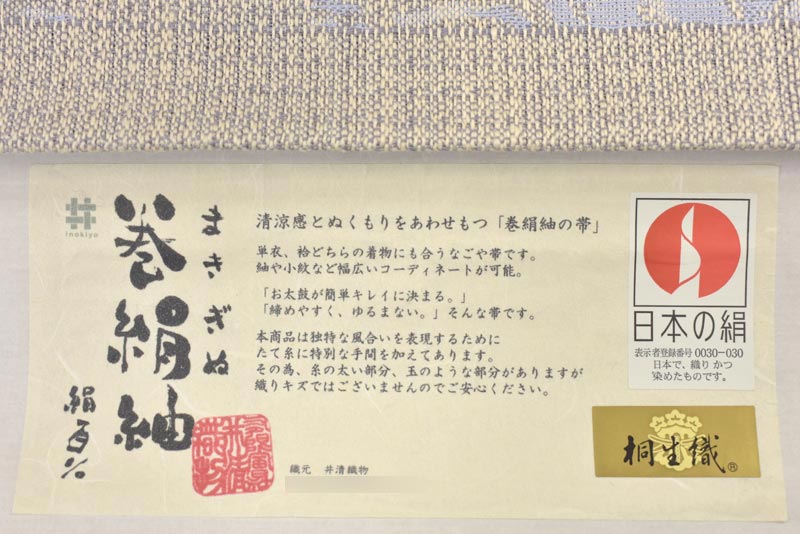 inokiyo
まきぎぬ
巻絹紬
絹百%
清涼感とぬくもりをあわせもつ「巻絹紬の帯」
単衣、袷どちらの着物にも合うなごや帯です。
紬や小紋など幅広いコーディネートが可能。
「お太鼓が簡単キレイに決まる。」
「締めやすく、ゆるまない。」そんな帯です。
本商品は独特な風合いを表現するために
たて糸に特別な手間を加えてあります。
その為、糸の太い部分、玉のような部分がありますが
織りキズではございませんのでご安心ください。
織元 井清織物
日本の絹
表示者登録番号 0030-030
日本で、織り かつ
染めたものです。
桐生織®